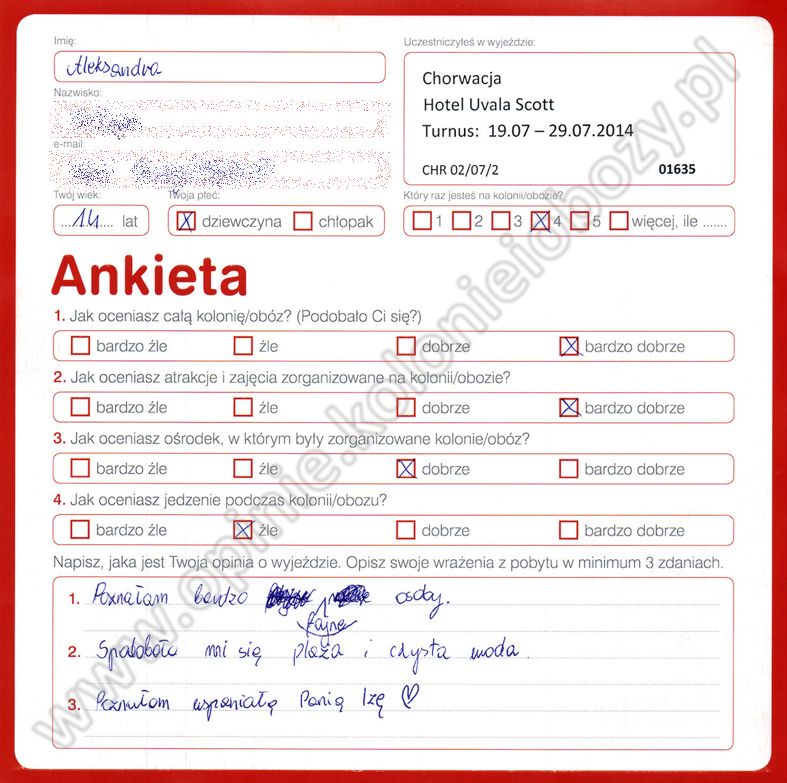 Imię:
Aleksandra
Uczestniczyłeś w wyjeździe:
Chorwacja
Hotel Uvala Scott
Turnus: 19.07 – 29.07.2014
CHR 02/07/2 01635
Nazwisko:
e-mail:
Twój wiek:
...14.... lat
Twoja płeć:
dziewczyna chłopak
Który raz jesteś na kolonii/obozie?
1 2 3 4 5 więcej, ile .......
Ankieta
1. Jak oceniasz całą kolonię/obóz? (Podobało Ci się?)
bardzo źle źle dobrze bardzo dobrze
2. Jak oceniasz atrakcje i zajęcia zorganizowane na kolonii/obozie?
bardzo źle źle dobrze bardzo dobrze
3. Jak oceniasz ośrodek, w którym były zorganizowane kolonie/obóz?
bardzo źle źle dobrze bardzo dobrze
4. Jak oceniasz jedzenie podczas kolonii/obozu?
bardzo źle źle dobrze bardzo dobrze
Napisz, jaka jest Twoja opinia o wyjeździe. Opisz swoje wrażenia z pobytu w minimum 3 zdaniach.
1. Poznałam bardzo fajne osoby.
2. Spodobała mi się plaża i czysta woda.
3. Poznałam wspaniałą Panią Izę ♡
www.opinie.kolonieiobozy.pl